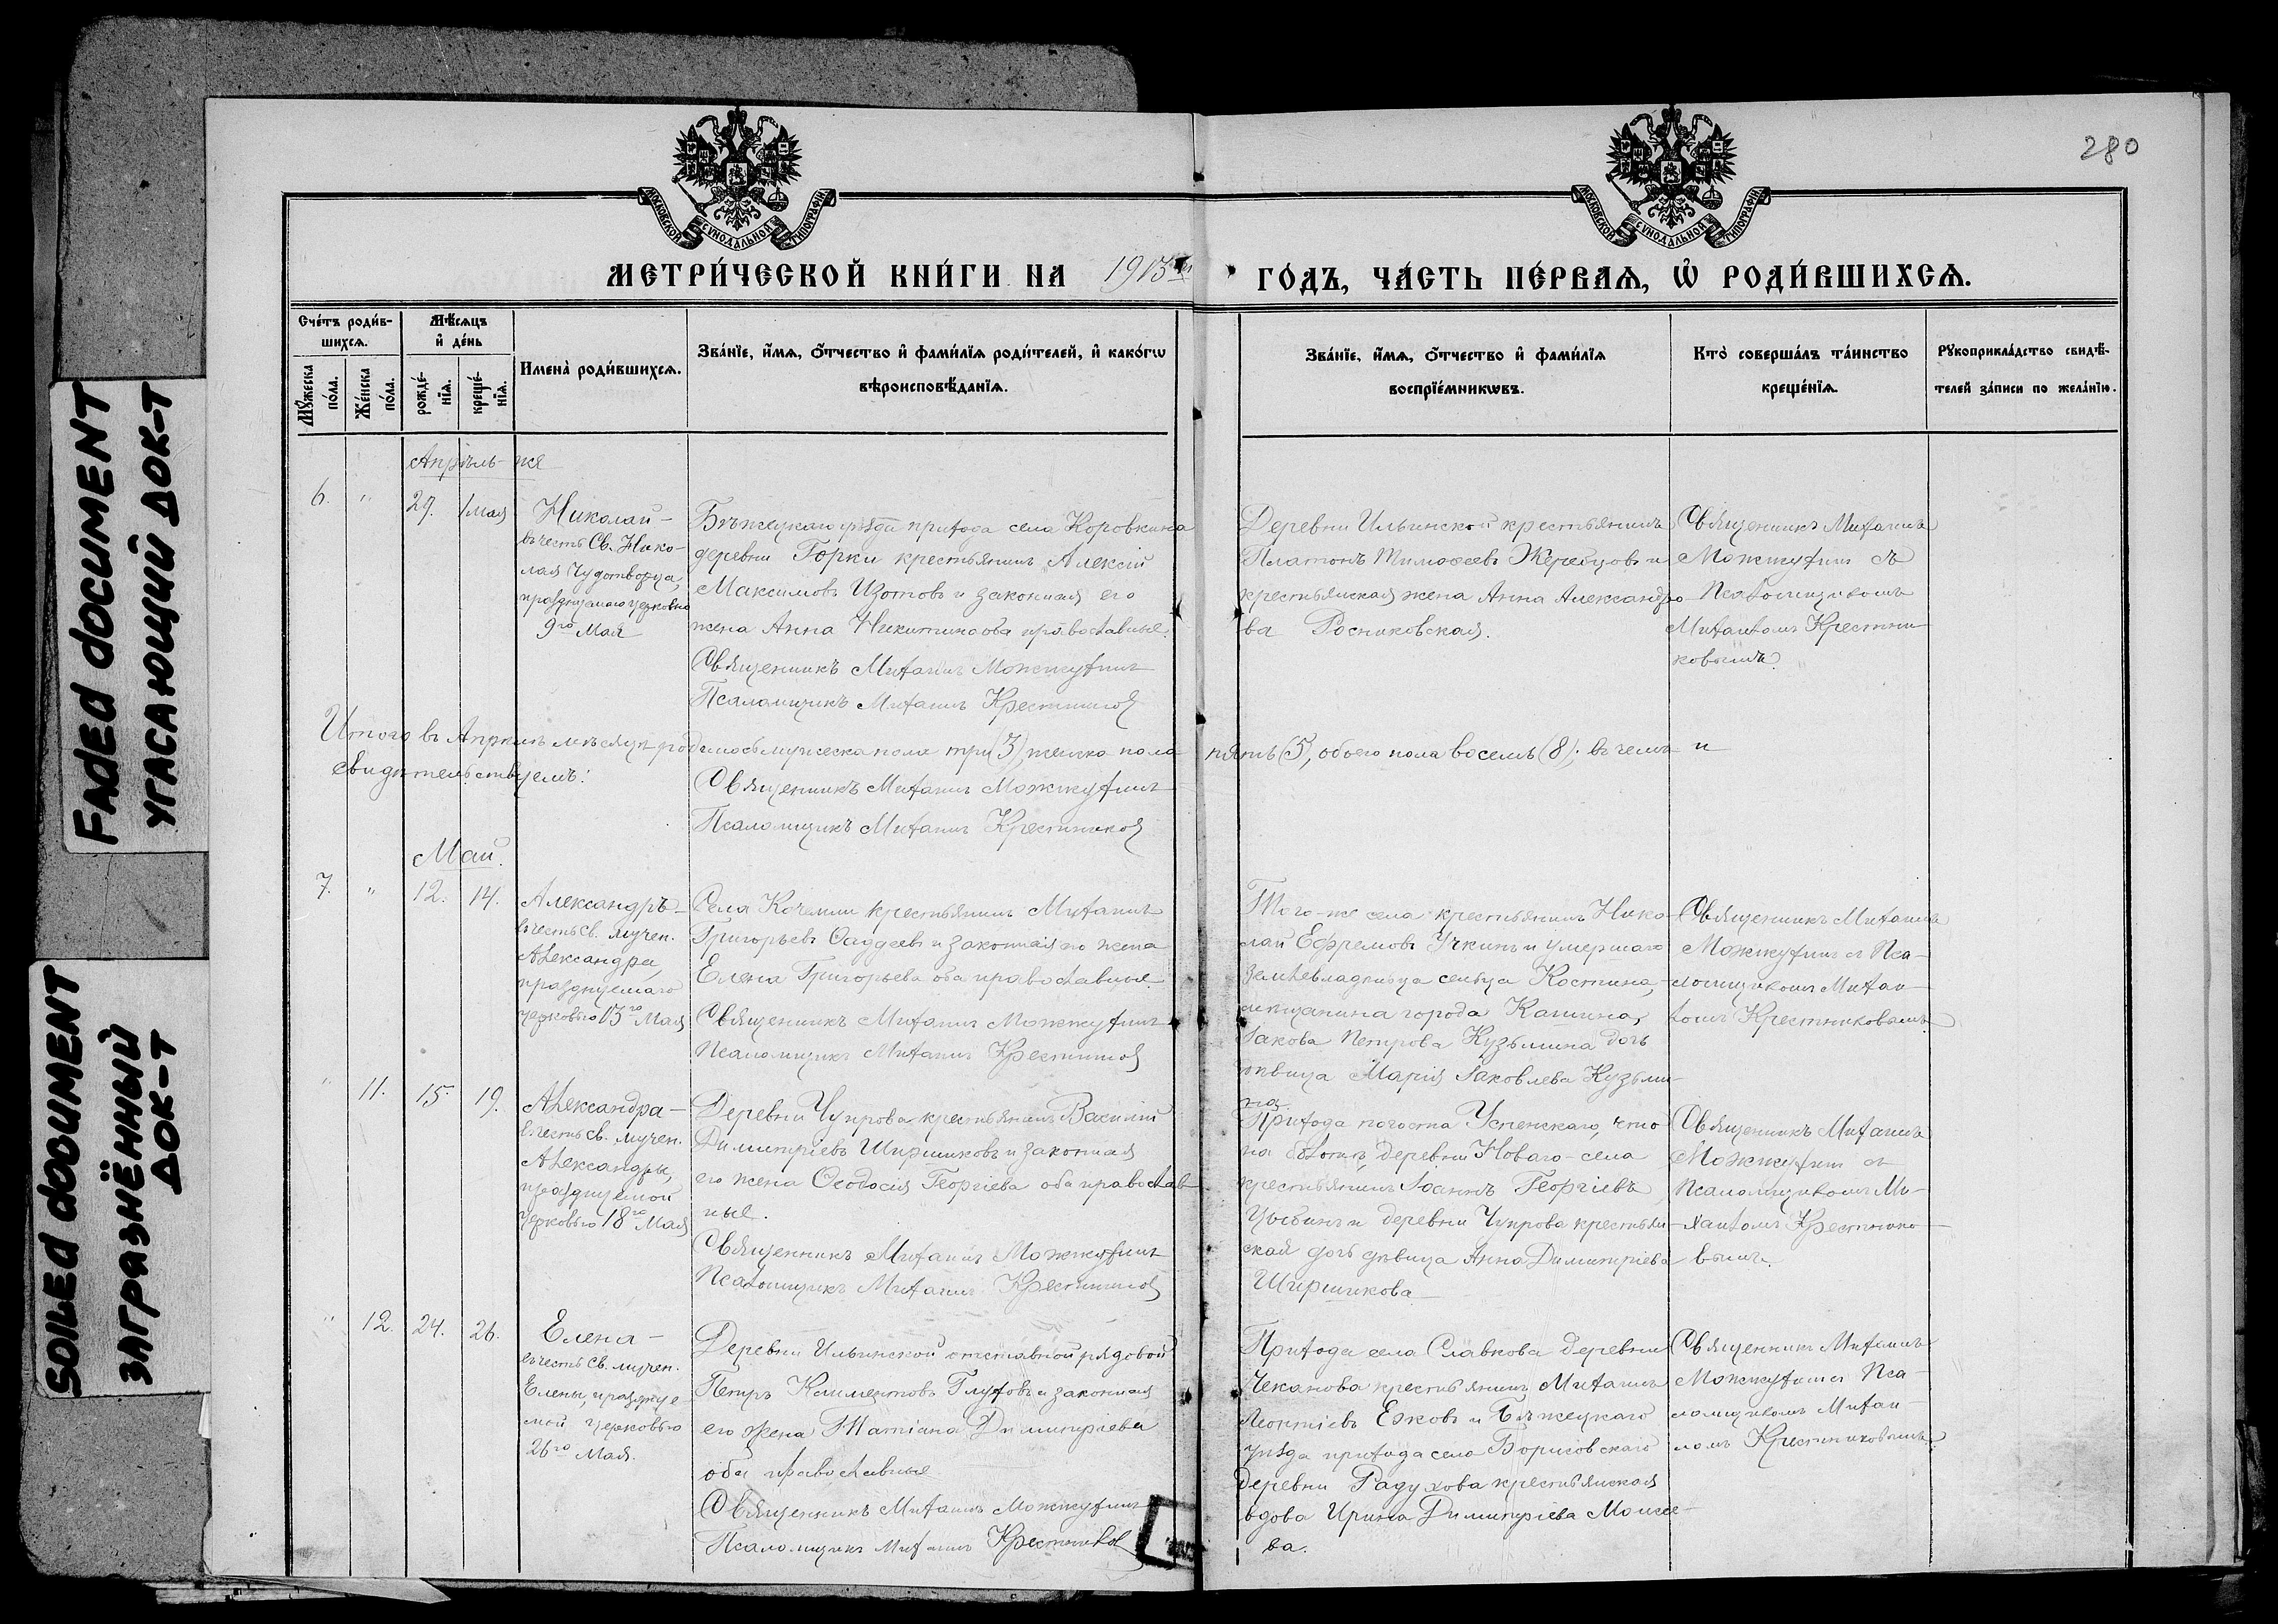 Faded document
угасающий док-т
Soiled dooument
загразнённый
док-т
280
Московской Сѵнодальной Типографіи
Московской Сѵнодальной Типографіи
Метри́ческой кни́ги на 1913 й
го́дъ, ча́сть пе́рваѧ, ѡ҆ роди́вшихсѧ.
Сче́тъ роди́в-
шихсѧ.
Мѣ́сѧцъ
и҆ де́нь
Мꙋ́жеска по́ла.
Же́нска по́ла.
рожде́-
нїѧ.
креще́-
нїѧ.
Имена̀ роди́вшихсѧ.
Зва́нїе, и҆́мѧ, ѻ҆́тчество и҆ фами́лїѧ роди́телей, и҆ како́гѡ
вѣроисповѣ́данїѧ.
Зва́нїе, и҆́мѧ, ѻ҆́тчество и҆ фами́лїѧ
воспрїе́мникѡвъ.
Кто̀ соверша́лъ та́инство
креще́нїѧ.
Рꙋкоприкла́дство свидѣ́-
телей за́писи по жела́нїю.
Апрѣль-же
6. " 29. 1 мая
Николай-
въ честь Св. Нико-
лая Чудотворца,
празднуемаго церковію
9го Мая
Бѣжецкаго уѣзда прихода села Коровкина
деревни Горки крестьянинъ Алексій
Максимовъ Изотовъ и законная его
жена Анна Никитина оба православные.
Священникъ Михаилъ Можжухинъ
Псаломщикъ Михаилъ Крестников
Деревни Ильинской крестьянинъ
Платонъ Тимоѳеевъ Жеребцовъ и
крестьянская жена Анна Александро-
ва Росниковская.
Священникъ Михаилъ
Можжухинъ съ
Псаломщикомъ
Михаиломъ Крестни-
ковымъ.
Итого въ Апрѣлѣ мѣсяцѣ родилось мужеска пола три (3), женска пола пять (5), обоего пола восемь (8); въ чемъ и
свидѣтельствуемъ:
Священникъ Михаилъ Можжухинъ
Псаломщикъ Михаилъ Крестников
Май.
7. " 12. 14.
Александръ-
въ честь св. мучен.
Александра,
празднуемаго
церковью 13го Мая
Села Кочемли крестьянинъ Михаилъ
Григорьевъ Фаддеевъ и законная его жена
Елена Григорьева оба православные.
Священникъ Михаилъ Можжухинъ
Псаломщикъ Михаилъ Крестников
Того-же села крестьянинъ Нико-
лай Ефремовъ Учкинъ и умершаго
землевладѣльца сельца Костина,
мѣщанина города Кашина,
Іакова Петрова Кузьмина дочь
дѣвица Марія Іаковлева Кузьми-
на
Священникъ Михаилъ
Можжухинъ съ Пса-
ломщикомъ Михаи-
ломъ Крестниковымъ.
" 11. 15. 19.
Александра-
въ честь св. мучен.
Александры,
празднуемой
церковью 18го Мая
Деревни Чупрова крестьянинъ Василій
Димитріевъ Ширшиковъ и законная
его жена Ѳеодосія Георгіева оба православ-
ные.
Священникъ Михаилъ Можжухинъ
Псаломщикъ Михаилъ Крестников
Прихода погоста Успенскаго, что
на болотѣ, деревни Новаго-села
крестьянинъ Іоаннъ Георгіевъ
Цыбинъ и деревни Чупрова крестьян-
ская дочь дѣвица Анна Димитріева
Ширшикова
Священникъ Михаилъ
Можжухинъ съ
Псаломщикомъ Ми-
хаиломъ Крестнико-
вымъ.
" 12. 24. 26.
Елена-
въ честь св. мучен.
Елены, праздуе
мой церковью
26го Мая.
Деревни Ильинской отставной рядовой
Петръ Климентовъ Глуховъ и законная
его жена Татіана Димитріева
оба православные
Священникъ Михаилъ Можжухинъ
Псаломщикъ Михаилъ Крестников
Прихода села Славкова деревни
Чеканова крестьянинъ Михаилъ
Леонтіевъ Ежовъ и Бѣжецкаго
уѣзда прихода села Борисовскаго
деревни Радухова крестьянская
вдова Ирина Димитріева Моисее-
ва.
Священникъ Михаилъ
Можжухинъ съ Пса-
ломщикомъ Михаи-
ломъ Крестниковымъ.